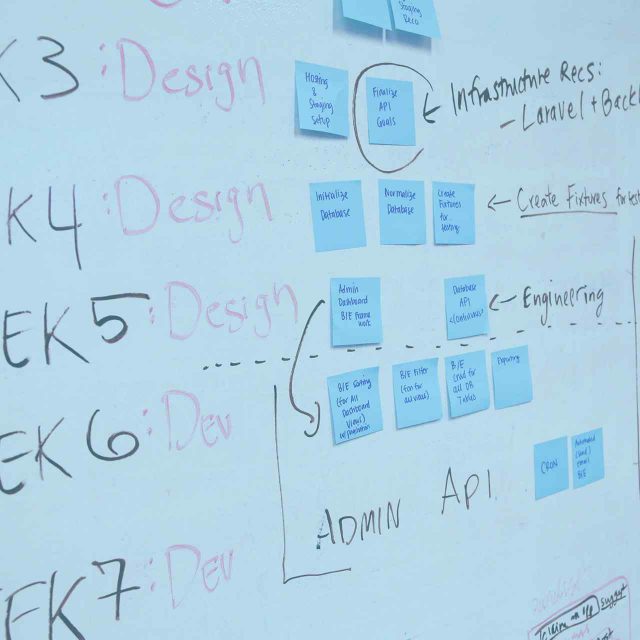 Staging
K3 : Design
Hosting
&
Staging
Setup
Finalize
API
Goals
← Infrastructure Recs:
- Laravel + Back
K4 : Design
Initialize
Database
Normalize
Database
Create
Fixtures
for
← Create Fixtures for test
EEK 5 : Design
Admin
Dashboard
B/E Frame
work
Database
API
← Engineering
EEK 6 : Dev
B/E
(for All
Dashboard
Views)
B/E Filter
B/E
for
all DB
Tables
CRON
Automated
email
B/E
ADMIN API
EEK 7 : Dev
support